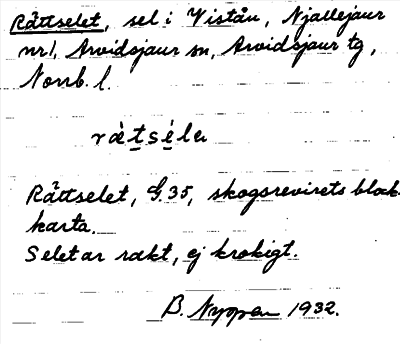 Råttselet, sel i Vistån, Njallejaur
nr1, Arvidsjaur sn, Arvidsjaur tg,
Norrb. l.
rätsélu
Råttselet, G.35, skogsrevirets block-
karta.
Selet ar rakt, ej krokigt.
B. Nyppan 1932.